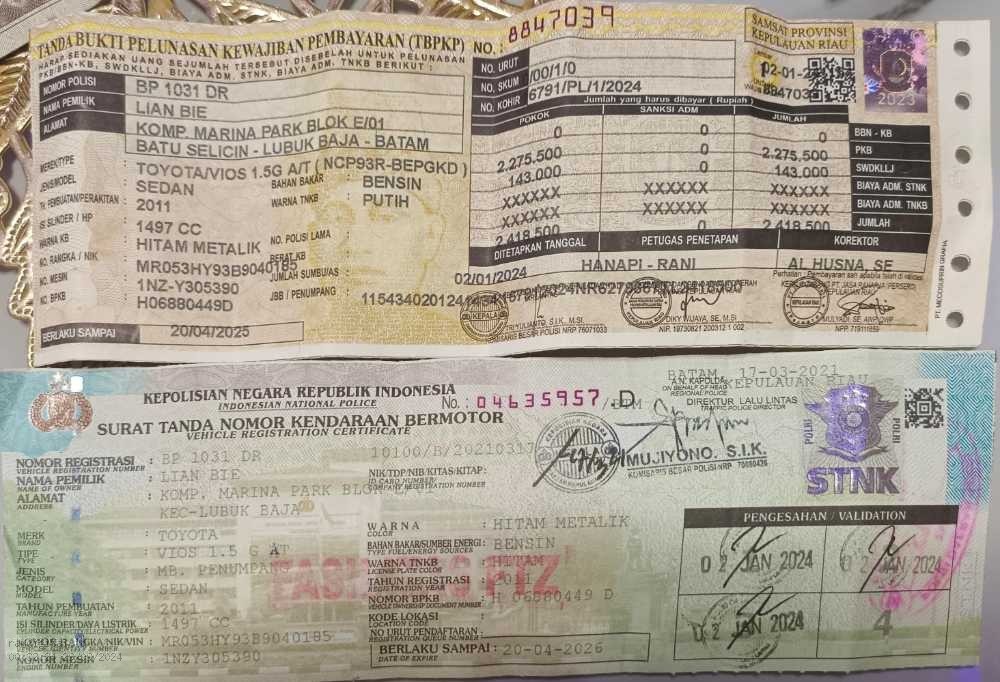 TANDA BUKTI PELUNASAN KEWAJIBAN PEMBAYARAN (TBPKP) NO.: 8847039
HARAP SEDIAKAN UANG SEJUMLAH TERSEBUT DISEBELAH UNTUK PELUNASAN
PKB/BBN-KB, SWDKLLJ, BIAYA ADM. STNK, BIAYA ADM. TNKB BERIKUT :
SAMSAT PROVINSI
KEPULAUAN RIAU
2023
NOMOR POLISI BP 1031 DR
NAMA PEMILIK LIAN BIE
ALAMAT KOMP. MARINA PARK BLOK E/01
BATU SELICIN - LUBUK BAJA - BATAM
MEREK/TYPE : TOYOTA/VIOS 1.5G A/T ( NCP93R-BEPGKD )
JENIS/MODEL : SEDAN BAHAN BAKAR : BENSIN
TH. PEMBUATAN/PERAKITAN : 2011 WARNA TNKB : PUTIH
ISI SILINDER / HP : 1497 CC
WARNA KB : HITAM METALIK NO. POLISI LAMA :
NO. RANGKA / NIK : MR053HY93B9040185 BERAT.KB
NO. MESIN : 1NZ-Y305390 JUMLAH SUMBU/AS :
NO. BPKB : H06880449D JBB / PENUMPANG :
BERLAKU SAMPAI : 20/04/2025
NO. URUT
NO. SKUM /00/1/0
NO. KOHIR 6791/PL/1/2024
Jumlah yang harus dibayar ( Rupiah )
POKOK SANKSI ADM JUMLAH
0 0 0 BBN - KB
2.275.500 0 2.275.500 PKB
143.000 0 143.000 SWDKLLJ
XXXXXX XXXXXX XXXXXX BIAYA ADM. STNK
XXXXXX XXXXXX XXXXXX BIAYA ADM. TNKB
2.418.500 0 2.418.500 JUMLAH
DITETAPKAN TANGGAL PETUGAS PENETAPAN KOREKTOR
02/01/2024 HANAPI - RANI AL HUSNA, SE
PT. JASA RAHARJA (PERSERO)
KEPALA
NIP. 19730821 200312 1 002
KEPOLISIAN NEGARA REPUBLIK INDONESIA
INDONESIAN NATIONAL POLICE
No.: 04635957 D
SURAT TANDA NOMOR KENDARAAN BERMOTOR
VEHICLE REGISTRATION CERTIFICATE
BATAM, 17-03-2021
A.N. KAPOLDA KEPULAUAN RIAU
ON BEHALF OF HEAD
REGIONAL POLICE
DIREKTUR LALU LINTAS
TRAFFIC POLICE DIRECTOR
MUJIYONO. S.I.K.
POLRI
POLRI
STNK
NOMOR REGISTRASI : BP 1031 DR 10100/B/20210317
VEHICLE REGISTRATION NUMBER
NAMA PEMILIK : LIAN BIE NIK/TDP/NIB/KITAS/KITAP:
NAME OF OWNER ID CARD NUMBER/
COMPANY REGISTRATION NUMBER
ALAMAT : KOMP. MARINA PARK BLOK E/01
ADDRESS KEC-LUBUK BAJA
MERK : TOYOTA
BRAND
TIPE : VIOS 1.5 G AT
TYPE
JENIS : MB. PENUMPANG
CATEGORY
MODEL : SEDAN
MODEL
TAHUN PEMBUATAN : 2011
MANUFACTURE YEAR
ISI SILINDER/DAYA LISTRIK : 1497 CC
CYLINDER CAPACITY/ELECTRICAL POWER
NOMOR RANGKA/NIK/VIN : MR053HY93B9040185
VEHICLE IDENTITY NUMBER
NOMOR MESIN : 1NZY305390
ENGINE NUMBER
WARNA : HITAM METALIK
COLOR
BAHAN BAKAR/SUMBER ENERGI : BENSIN
TYPE FUEL/ENERGY SOURCES
WARNA TNKB : HITAM
LICENSE PLATE COLOR
TAHUN REGISTRASI : 2011
REGISTRATION YEAR
NOMOR BPKB : H 06880449 D
VEHICLE OWNERSHIP DOCUMENT NUMBER
KODE LOKASI :
LOCATION CODE
NO URUT PENDAFTARAN :
REGISTRATION QUEUE NUMBER
BERLAKU SAMPAI : 20-04-2026
DATE OF EXPIRE
PENGESAHAN / VALIDATION
02 JAN 2024
JAN 2024
02 JAN 2024
4
PT. MICOSUPRIN GRAHA